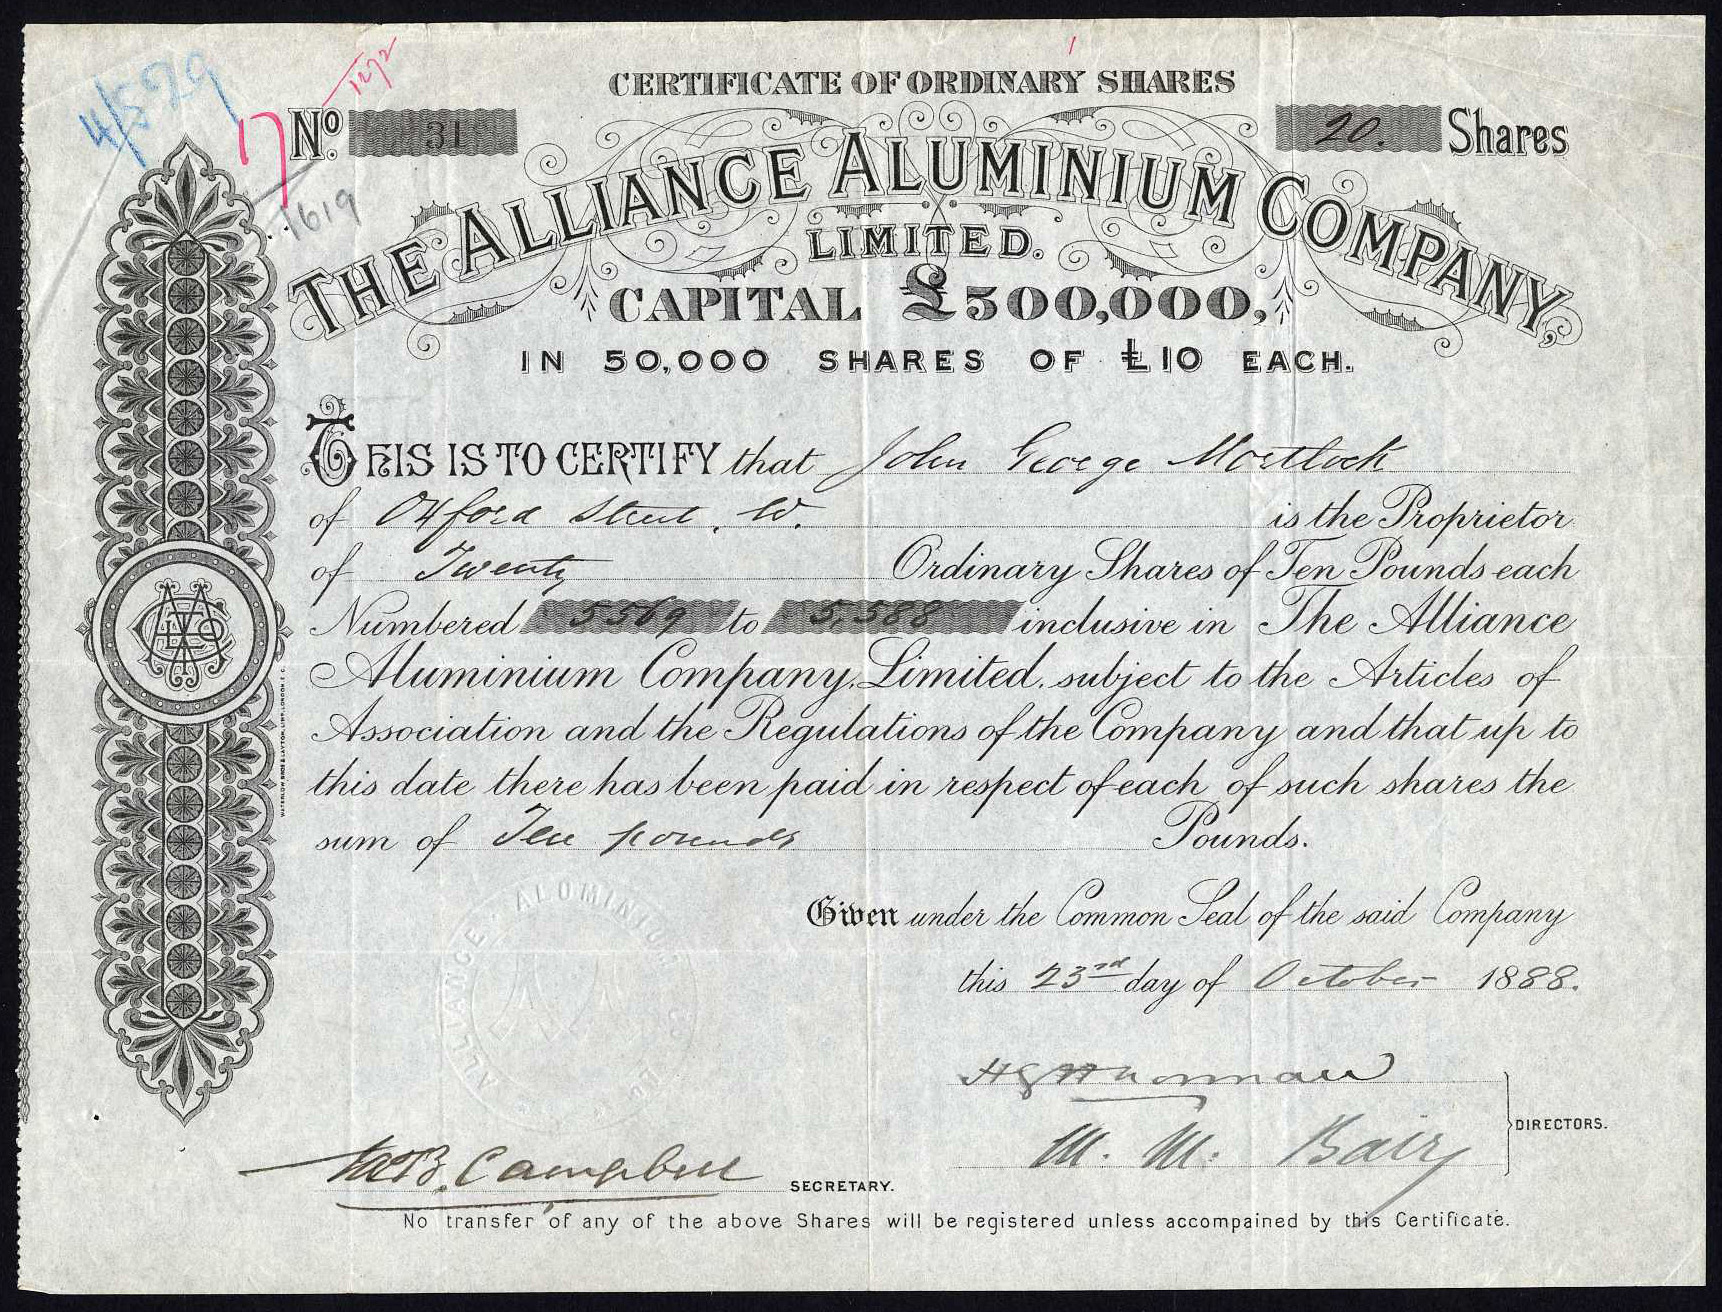 4/5579
1272
17
1619
CERTIFICATE OF ORDINARY SHARES
No. 31
20. Shares
THE ALLIANCE ALUMINIUM COMPANY,
LIMITED.
CAPITAL £500,000,
IN 50,000 SHARES OF £10 EACH.
THIS IS TO CERTIFY that John George Mortlock
of Oxford Street. W. is the Proprietor
of Twenty Ordinary Shares of Ten Pounds each
Numbered 5569 to 5,588 inclusive in The Alliance
Aluminium Company, Limited, subject to the Articles of
Association and the Regulations of the Company and that up to
this date there has been paid in respect of each of such shares the
sum of Ten pounds Pounds.
Given under the Common Seal of the said Company
this 23rd day of October 1888.
ALLIANCE ALUMINIUM Co LD
Norman
M. M. Bair
DIRECTORS.
B. Campbell
SECRETARY.
No transfer of any of the above Shares will be registered unless accompained by this Certificate.
WATERLOW BROS & LAYTON, LIMD, LONDON, E.C.